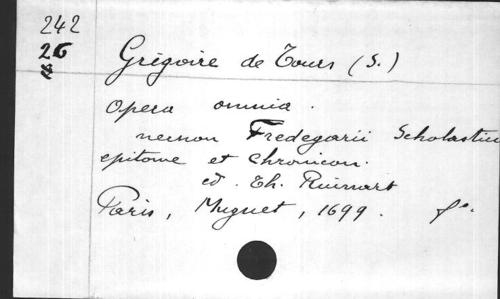 242
26
Grégoire de Tours (S.)
Opera omnia.
necnon Fredegarii Scholastici
epitome et Chronicon.
ed. Th. Ruinart
Paris, Muguet, 1699. fo.